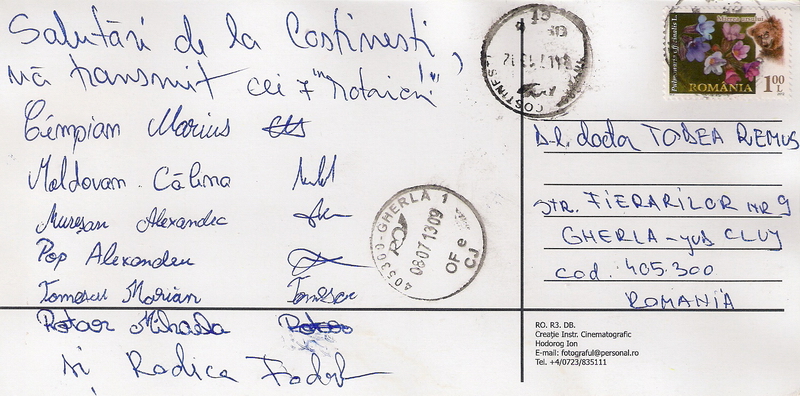 Salutări de la Costinesti,
vă transmit cei 7 "notaieni"
Cîmpian Marius
Moldovan Călina
Mureșan Alexandra
Pop Alexandru
Tomescu Marian Tomescu
Rotaor Mihaela Rotaor
și Rodica Fodor
COSTINESTI
405300-GHERLA 1
08 07 13 09
OF e
CJ
Pulmonaria officinalis L.
Mierea ursului
ROMÂNIA 1.00 L
D-l. docta TOBEA REMUS
STR. FIERARILOR NR 9
GHERLA - jud CLUJ
cod: 405.300
ROMANIA
RO. R3. DB.
Creație Instr. Cinematografic
Hodorog Ion
E-mail: fotograful@personal.ro
Tel. +4/0723/835111